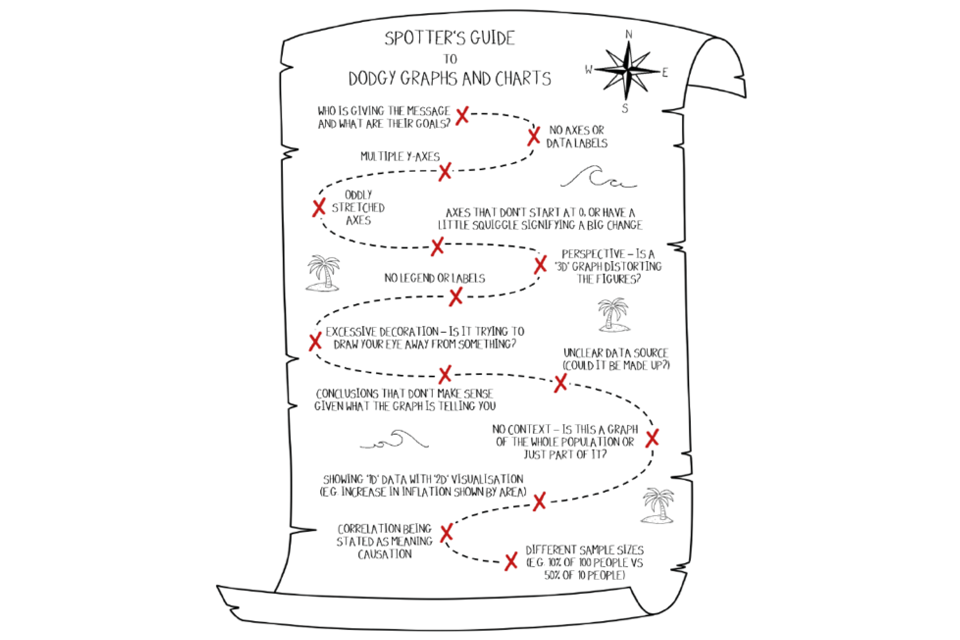 SPOTTER'S GUIDE
TO
DODGY GRAPHS AND CHARTS
N
W
E
S
WHO IS GIVING THE MESSAGE
AND WHAT ARE THEIR GOALS?
NO AXES OR
DATA LABELS
MULTIPLE Y-AXES
ODDLY
STRETCHED
AXES
AXES THAT DON'T START AT 0, OR HAVE A
LITTLE SQUIGGLE SIGNIFYING A BIG CHANGE
PERSPECTIVE – IS A
'3D' GRAPH DISTORTING
THE FIGURES?
NO LEGEND OR LABELS
EXCESSIVE DECORATION – IS IT TRYING TO
DRAW YOUR EYE AWAY FROM SOMETHING?
UNCLEAR DATA SOURCE
(COULD IT BE MADE UP?)
CONCLUSIONS THAT DON'T MAKE SENSE
GIVEN WHAT THE GRAPH IS TELLING YOU
NO CONTEXT – IS THIS A GRAPH
OF THE WHOLE POPULATION OR
JUST PART OF IT?
SHOWING '1D' DATA WITH '2D' VISUALISATION
(E.G. INCREASE IN INFLATION SHOWN BY AREA)
CORRELATION BEING
STATED AS MEANING
CAUSATION
DIFFERENT SAMPLE SIZES
(E.G. 10% OF 100 PEOPLE VS
50% OF 10 PEOPLE)